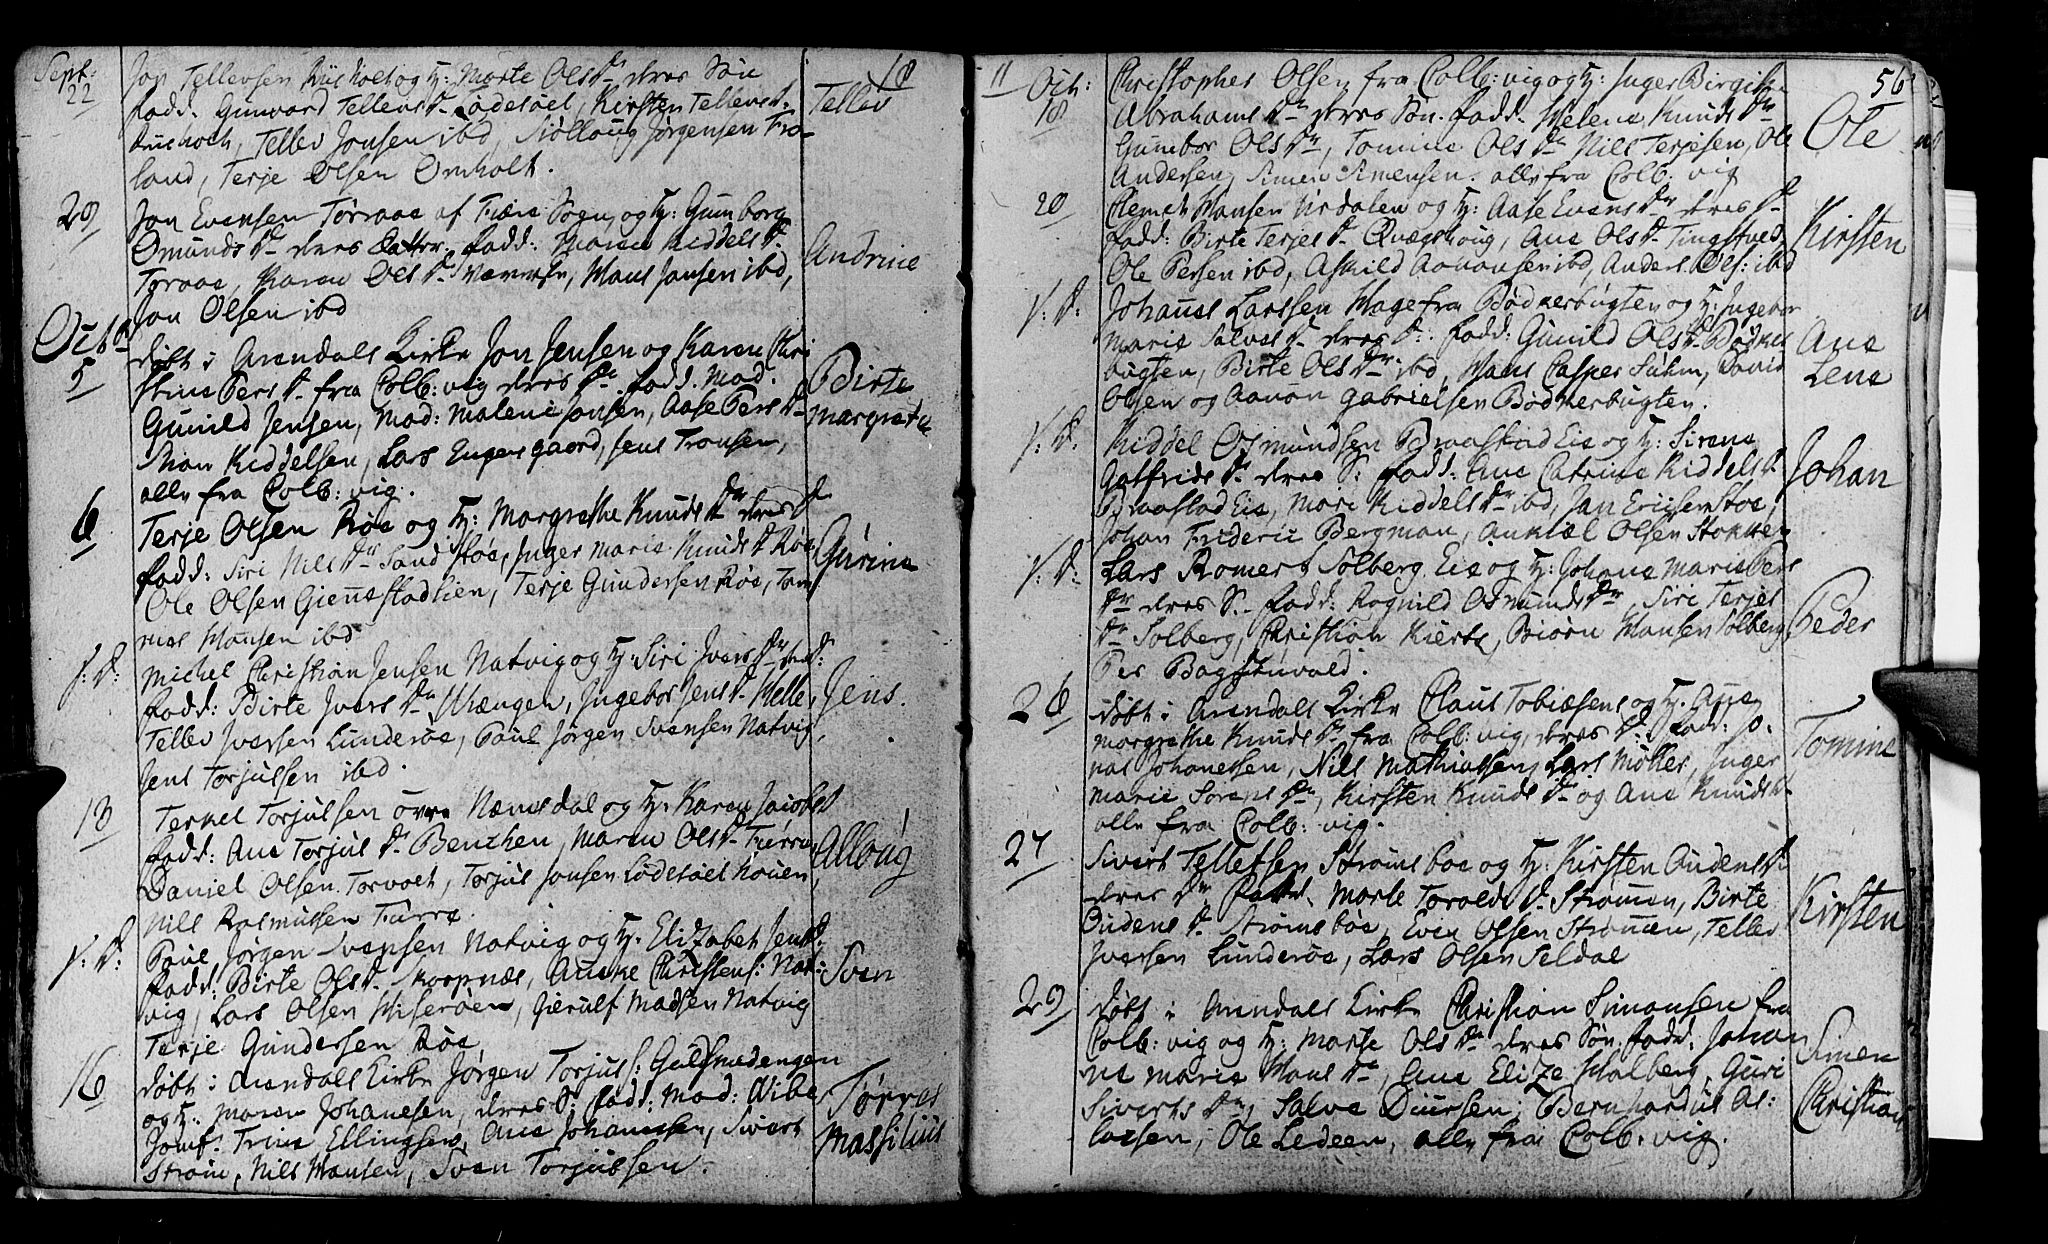 18
Sept:
22
Jon Tellevsen Huusholt og H: Marte Ols Dr deres Søn
fadd: Gunvord Tellevs Dr Lødesøel, Kirsten Tellevs D.
Tellev Jonsen ibd, Siøllaug Jørgensen Frø-
land, Terje Olsen Omholt.
Tellev
29
Jon Evensen Torraas af Fiære Sogn, og H: Gunborg
Omunds Dr deres Datter. fadd: Maren Kiddels D.
Toraas, Karen Ols Dr Hans Jansen ibd,
Jon Olsen ibd
Andrine
Octbr
5
døbt i Arendals Kirke Jon Jensen og Karen Chri
stine Pers Dr fra Colb: vig deres Dr fadd. Mad.
Gunild Jensen, Mad: Malene Jonsen, Aase Pers D-
Kiddelsen, Lars Engersgaard, Jens Tronsen,
alle fra Colb: vig.
Birte
Margrete
6
Terje Olsen Røe og H: Margrethe Knuds Dr deres D
fadd: Siri Nils Dr Sandstøe, Inger Marie Knuds D Røe
Ole Olsen Giennestadlien, Terje Gundersen Røe, Tom
mas Hansen ibd
Gurine
S: D:
Michel Christian Jensen Natvig og H: Siri Ivers Dr
fadd: Birte Ivers Dr Wrængen, Ingebor Jens D. Helle,
Tellev Iversen Lunderøe, Poul Jørgen Svensen Natvig,
Jens Torjussen ibd.
Jens.
13
Terkel Torjulsen øvre Næmsdal og H: Karen Jacobs D
fadd: Ane Torjus D. Benzhen, Maren Ols D. Furre,
Daniel Olsen Torvolt, Torjus Jonsen Lødesøel
Nils Rasmussen Furre.
Alloug
S: D:
Poul Jørgen Svensen Natvig og H. Elizabet Jens D:
fadd: Birte Ols D. Skorpnæs, Anne Christens: Nat:
vig, Lars Olsen Hiserøen, Gierulf Madsen Natvig
Terje Gundersen Røe
Sven
16
døbt i Arendals Kirke Jørgen Torjus S: Gulsmedengen
og H: Maren Johanesen, deres S. fadd: Mad: Wibe
Jomf. Trine Ellingsen, Ane Johannesen, Sivert
Strøm, Nils Hansen, Sven Torjussen.
Tørres
Massilius
11
56
Oct:
18
Christopher Olsen fra Colb: vig og H: Inger Birgitte
Abrahams Dr deres Søn. fadd. Helene Knuds Dr
Gunbor Ols Dr, Tomine Ols Dr Nils Terjesen, Ole
Andersen, Simen Simensen. alle fra Colb: vig
Ole
20
Clemet Hansen Nirdalen og H: Aase Evens Dr deres D-
fadd: Birte Terjes D. Qvægshoug, Ane Ols D. Tingstved,
Ole Persen ibd, Askild Aanonsen ibd, Anders Ols: ibd
Kirsten
S: D:
Johans Larssen Hage fra Bødkerbugten og H: Ingebor
Marie Salves D. deres D:. fadd: Gunild Ols D. Bødker
bugten, Birte Ols Dr ibd, Hans Casper Suhm, David
Olsen og Aanon Gabrielsen Bødkerbugten.
Ane
Lene
S: D:
Kiddel Osmundsen Braastad Eie og H: Sirene
Gotfrids D. deres S: fadd: Ane Catrine Kiddels D.
Braastad Eie, Mari Kiddels Dr ibd, Jan Ericsen Stoe,
Johan Frideric Bergman, Olsen Stokke,
Johan
S: D:
Lars Romer Solberg Eie og H: Johane Marie Pers
Dr deres S. fadd: Rognild Osmunds Dr, Siri Terjes
Dr Solberg, Christian Kierte, Biørn Hansen Solberg,
Per Bagstevold.
Peder
26
døbt i Arendals Kirke Claus Tobiæsens og H. Ane
Margrethe Knuds Dr fra Colb: vig, deres D. fadd: Jo-
nas Johanessen, Nils Mathiassen, Lars Møller, Inger
Marie Sørens Dr, Kirsten Knuds Dr og Ane Knuds D.
alle fra Colb: vig.
Tomine
27
Sivert Tellefsen Strømsboe og H: Kirsten Oudens D.
deres Dr fadd. Marte Torolds D. Strømen, Birte
Oudens D. Strømsboe, Even Olsen Strømen, Tellev
Iversen Lunderøe, Lars Olsen Seldal
Kirsten
29
døbt i Arendals Kirke Christian Simonsen fra
Colb: vig og H: Marte Ols Dr deres Søn. fadd. Johan
ne Marie Hans Dr, Ane Elize Holberg, Guri
Siverts Dr, Salve Duursen, Bernhardus As:
lacsen, Ole Ledeen, alle fra Colb: vig.
Simen
Christian